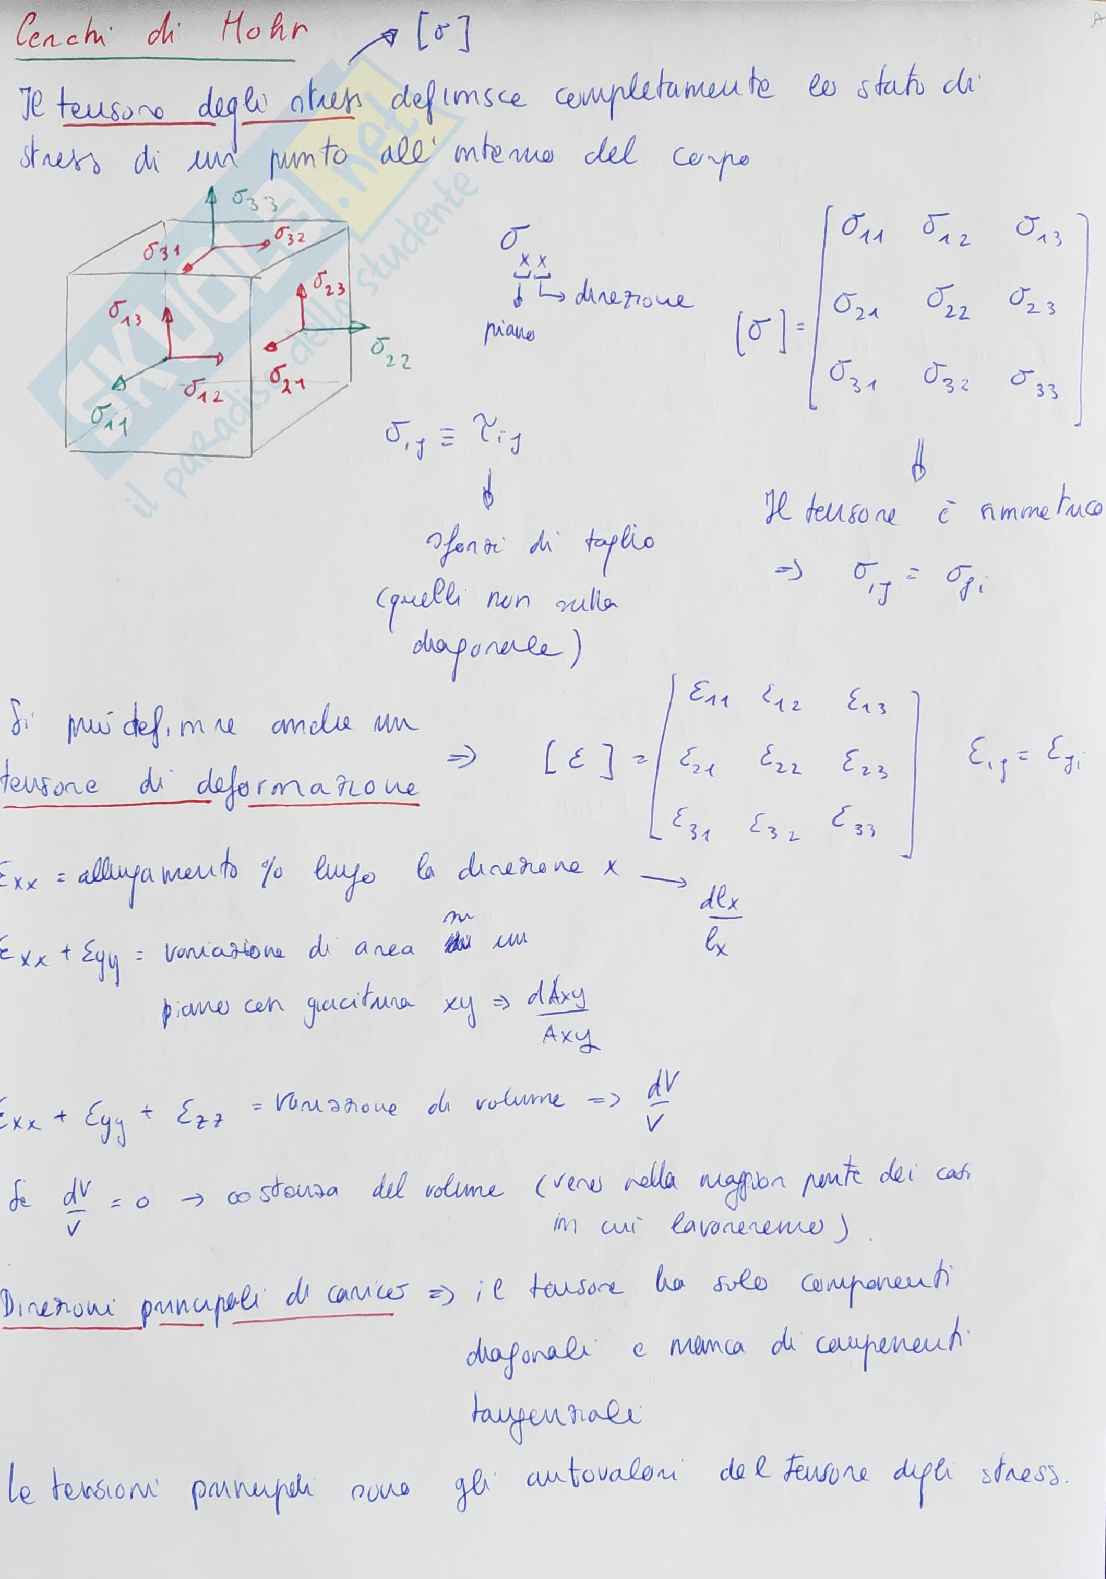 Cerchi di Mohr
[σ]
Il tensore degli stress definisce completamente lo stato di
stress di un punto all'interno del corpo
σ33
σ31
σ32
σ13
σ23
σ11
σ12
σ21
σ22
σxx
direzione
piano
[σ] = [σ11 σ12 σ13
σ21 σ22 σ23
σ31 σ32 σ33]
σij ≡ τij
sforzi di taglio
(quelli non sulla
diagonale)
Il tensore è simmetrico
=> σij = σji
Si può definire anche un
tensore di deformazione => [ε] = [ε11 ε12 ε13
ε21 ε22 ε23
ε31 ε32 ε33] εij = εji
εxx = allungamento % lungo la direzione x → dlx/lx
εxx + εyy = variazione di area su un
piano con giacitura xy => dAxy/Axy
εxx + εyy + εzz = variazione di volume => dV/V
Se dV/V = 0 → costanza del volume (vero nella maggior parte dei casi
in cui lavoreremo).
Direzioni principali di carico => il tensore ha solo componenti
diagonali e manca di componenti
tangenziali
Le tensioni principali sono gli autovalori del tensore degli stress.
SKUOLA.net
il paradiso dello studente